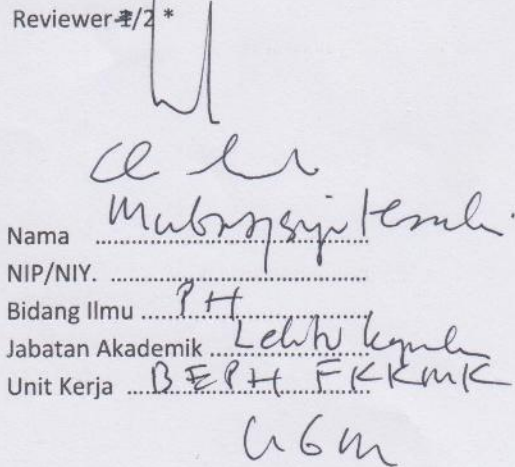 Reviewer 1/2 *
Nama ....................................
NIP/NIY. ....................................
Bidang Ilmu PH
Jabatan Akademik Lektor Kepala
Unit Kerja BEPH FKKMK
UGM